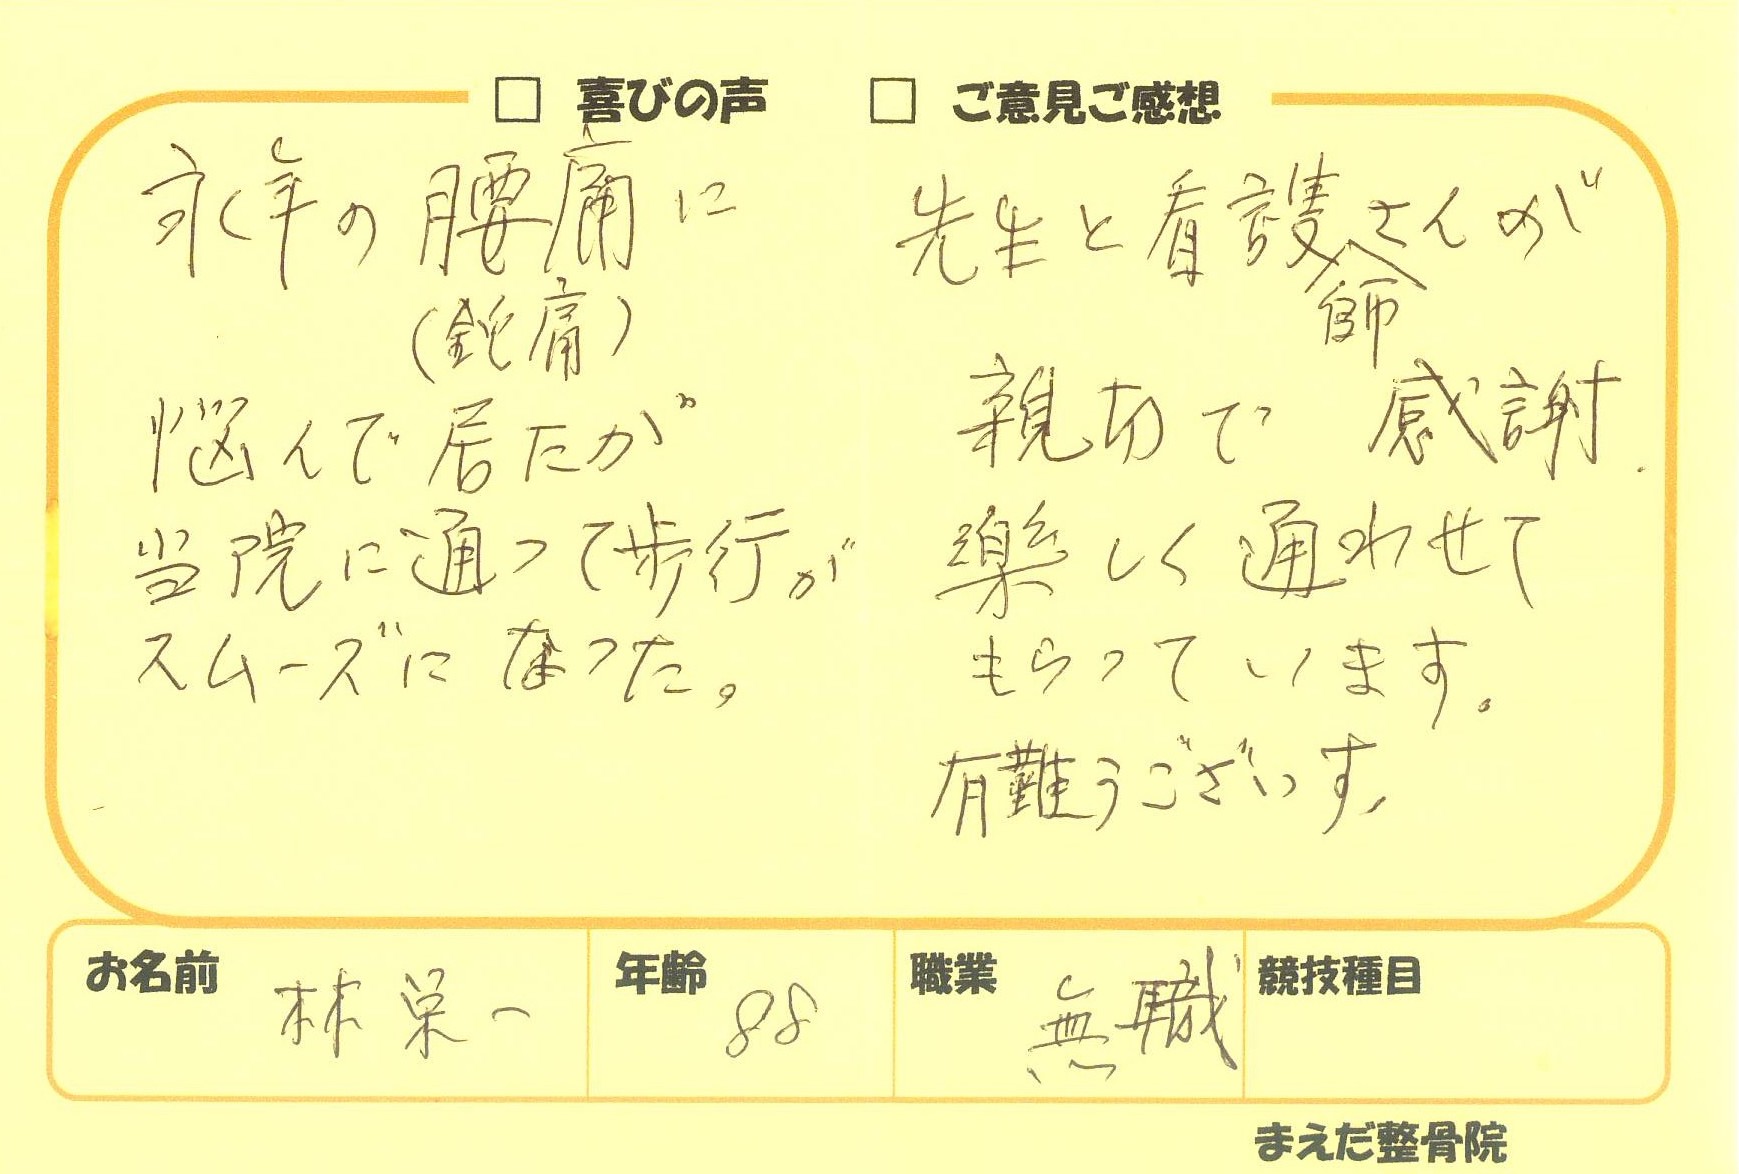 □ 喜びの声
□ ご意見ご感想
永年の腰痛に
(鈍痛)
悩んで居たが
当院に通って歩行が
スムーズになった。
先生と看護師さんが
親切で 感謝.
楽しく通わせて
もらっています。
有難うございす、
お名前 林栄一
年齢 88
職業 無職
競技種目
まえだ整骨院